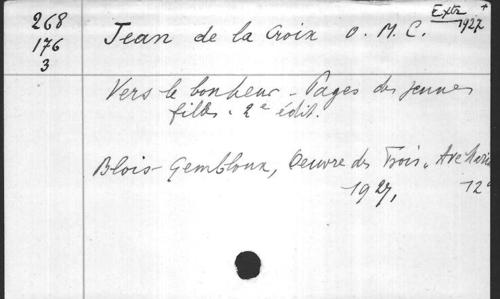 268
176
3
Jean de la Croix O. M. C.
Extr +
1927
Vers le bonheur - Pages des jeunes
filles. 2e édit.
Blois - Gembloux, Oeuvre des Trois "Ave Maria
1927, 12°